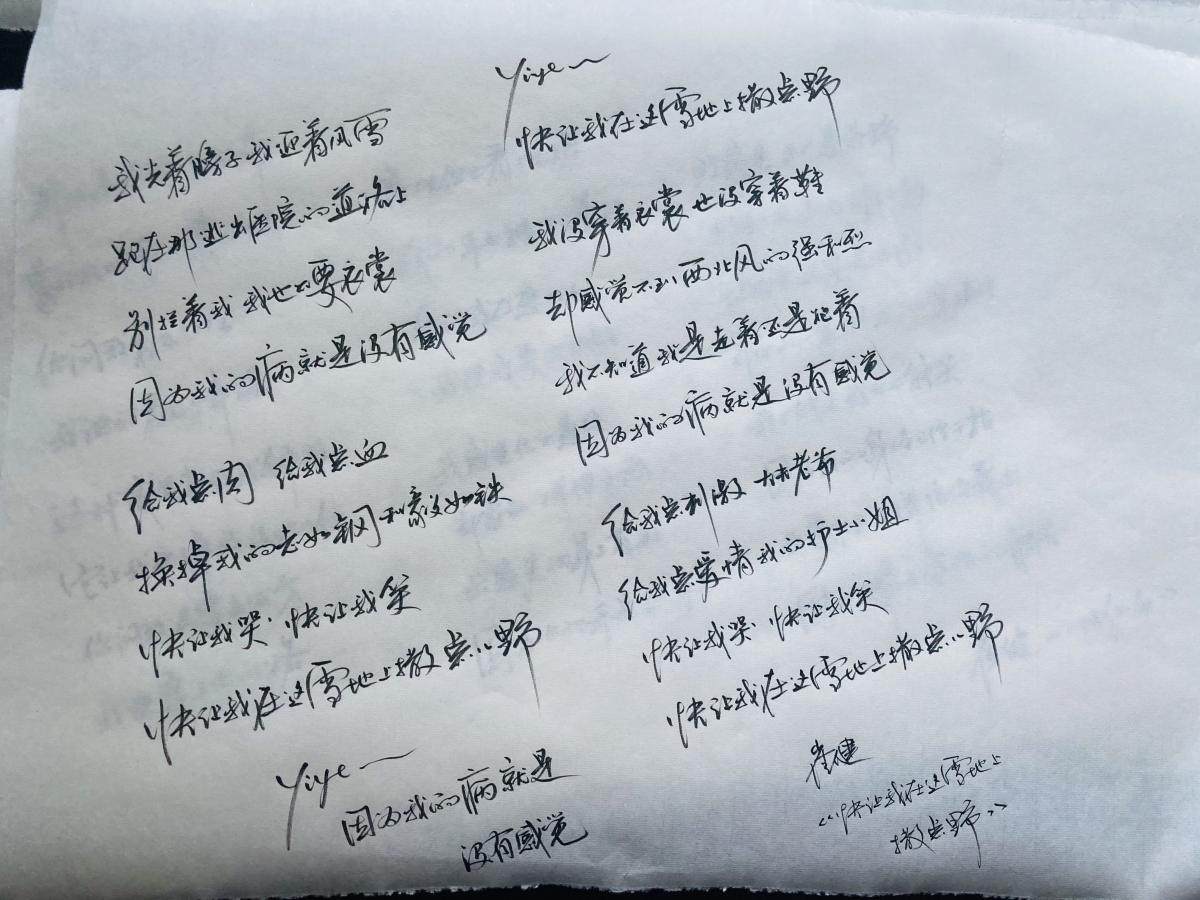 我光着膀子我迎着风雪
跑在那逃出医院的道路上
别拦着我 我也不要衣裳
因为我的病就是没有感觉
给我点肉 给我点血
换掉我的志如钢和毅如铁
快让我哭 快让我笑
快让我在这雪地上撒点儿野
Yiye~
因为我的病就是
没有感觉
Yiye~
快让我在这雪地上撒点野
我没穿着衣裳也没穿着鞋
却感觉不到西北风的强和烈
我不知道我是走着还是跑着
因为我的病就是没有感觉
给我点刺激 大夫老爷
给我点爱情我的护士小姐
快让我哭 快让我笑
快让我在这雪地上撒点儿野
崔健
《快让我在这雪地上
撒点野》